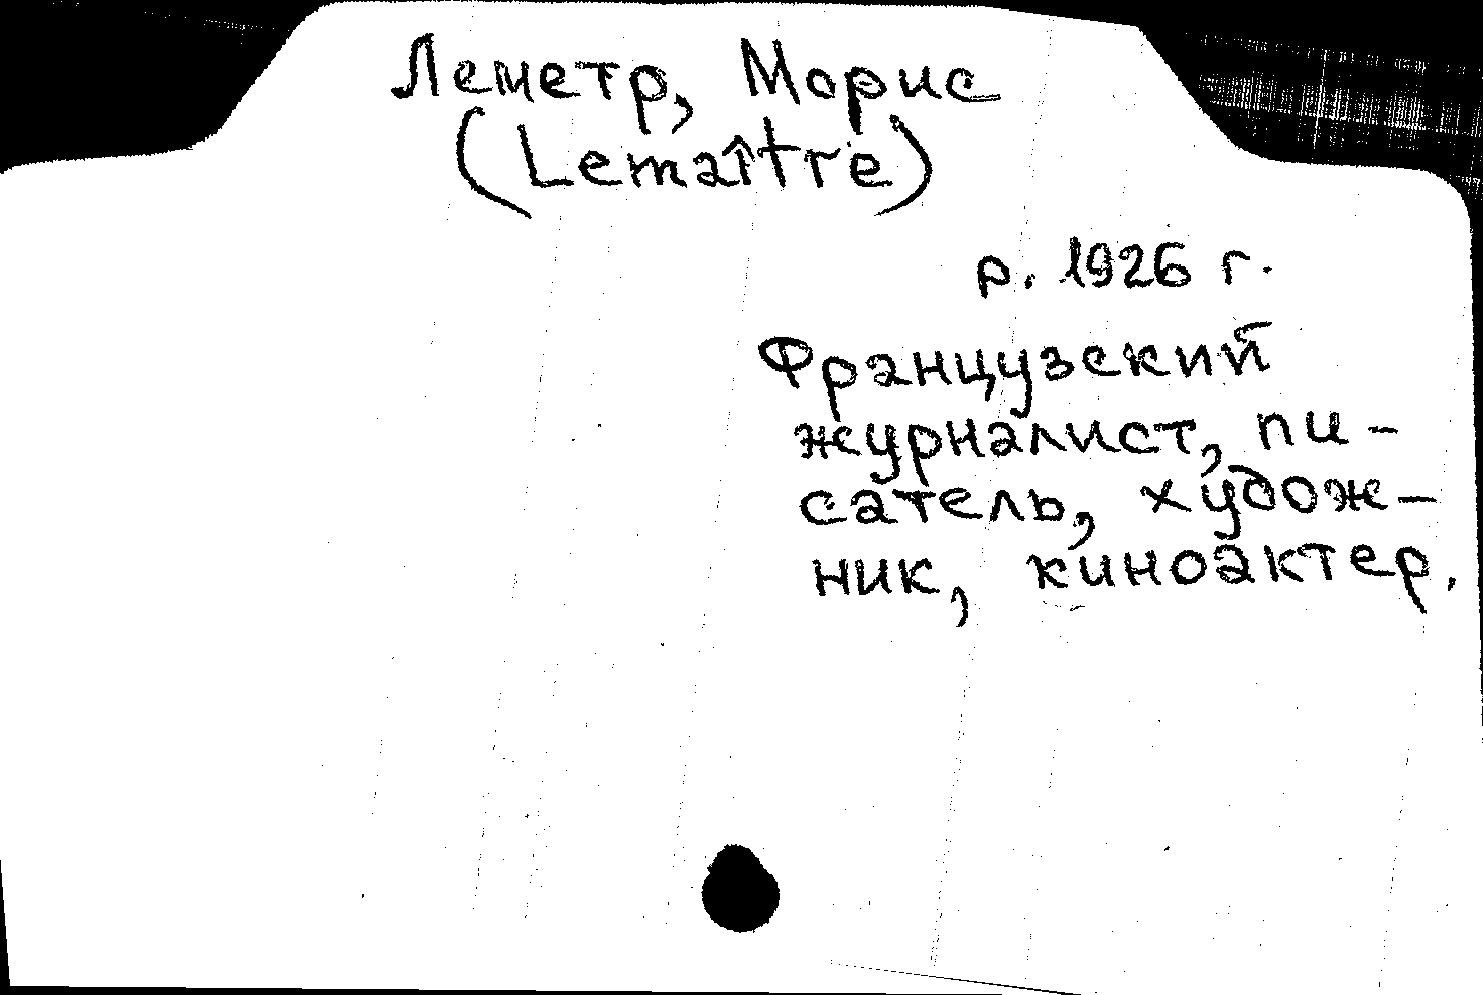 Леметр, Морис
(Lemaître)
р. 1926 г.
Французский
журналист, пи-
сатель, худож-
ник, киноактер.